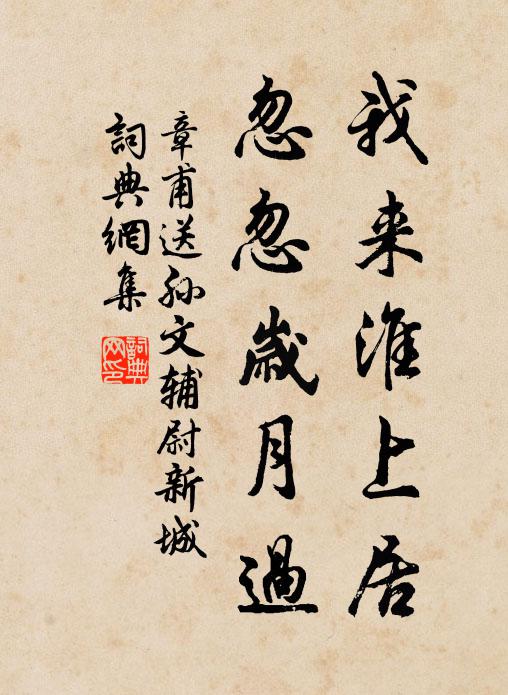 我来淮上居
忽忽歲月過
章甫送孙文辅尉新城
詞典網集
詞典網印